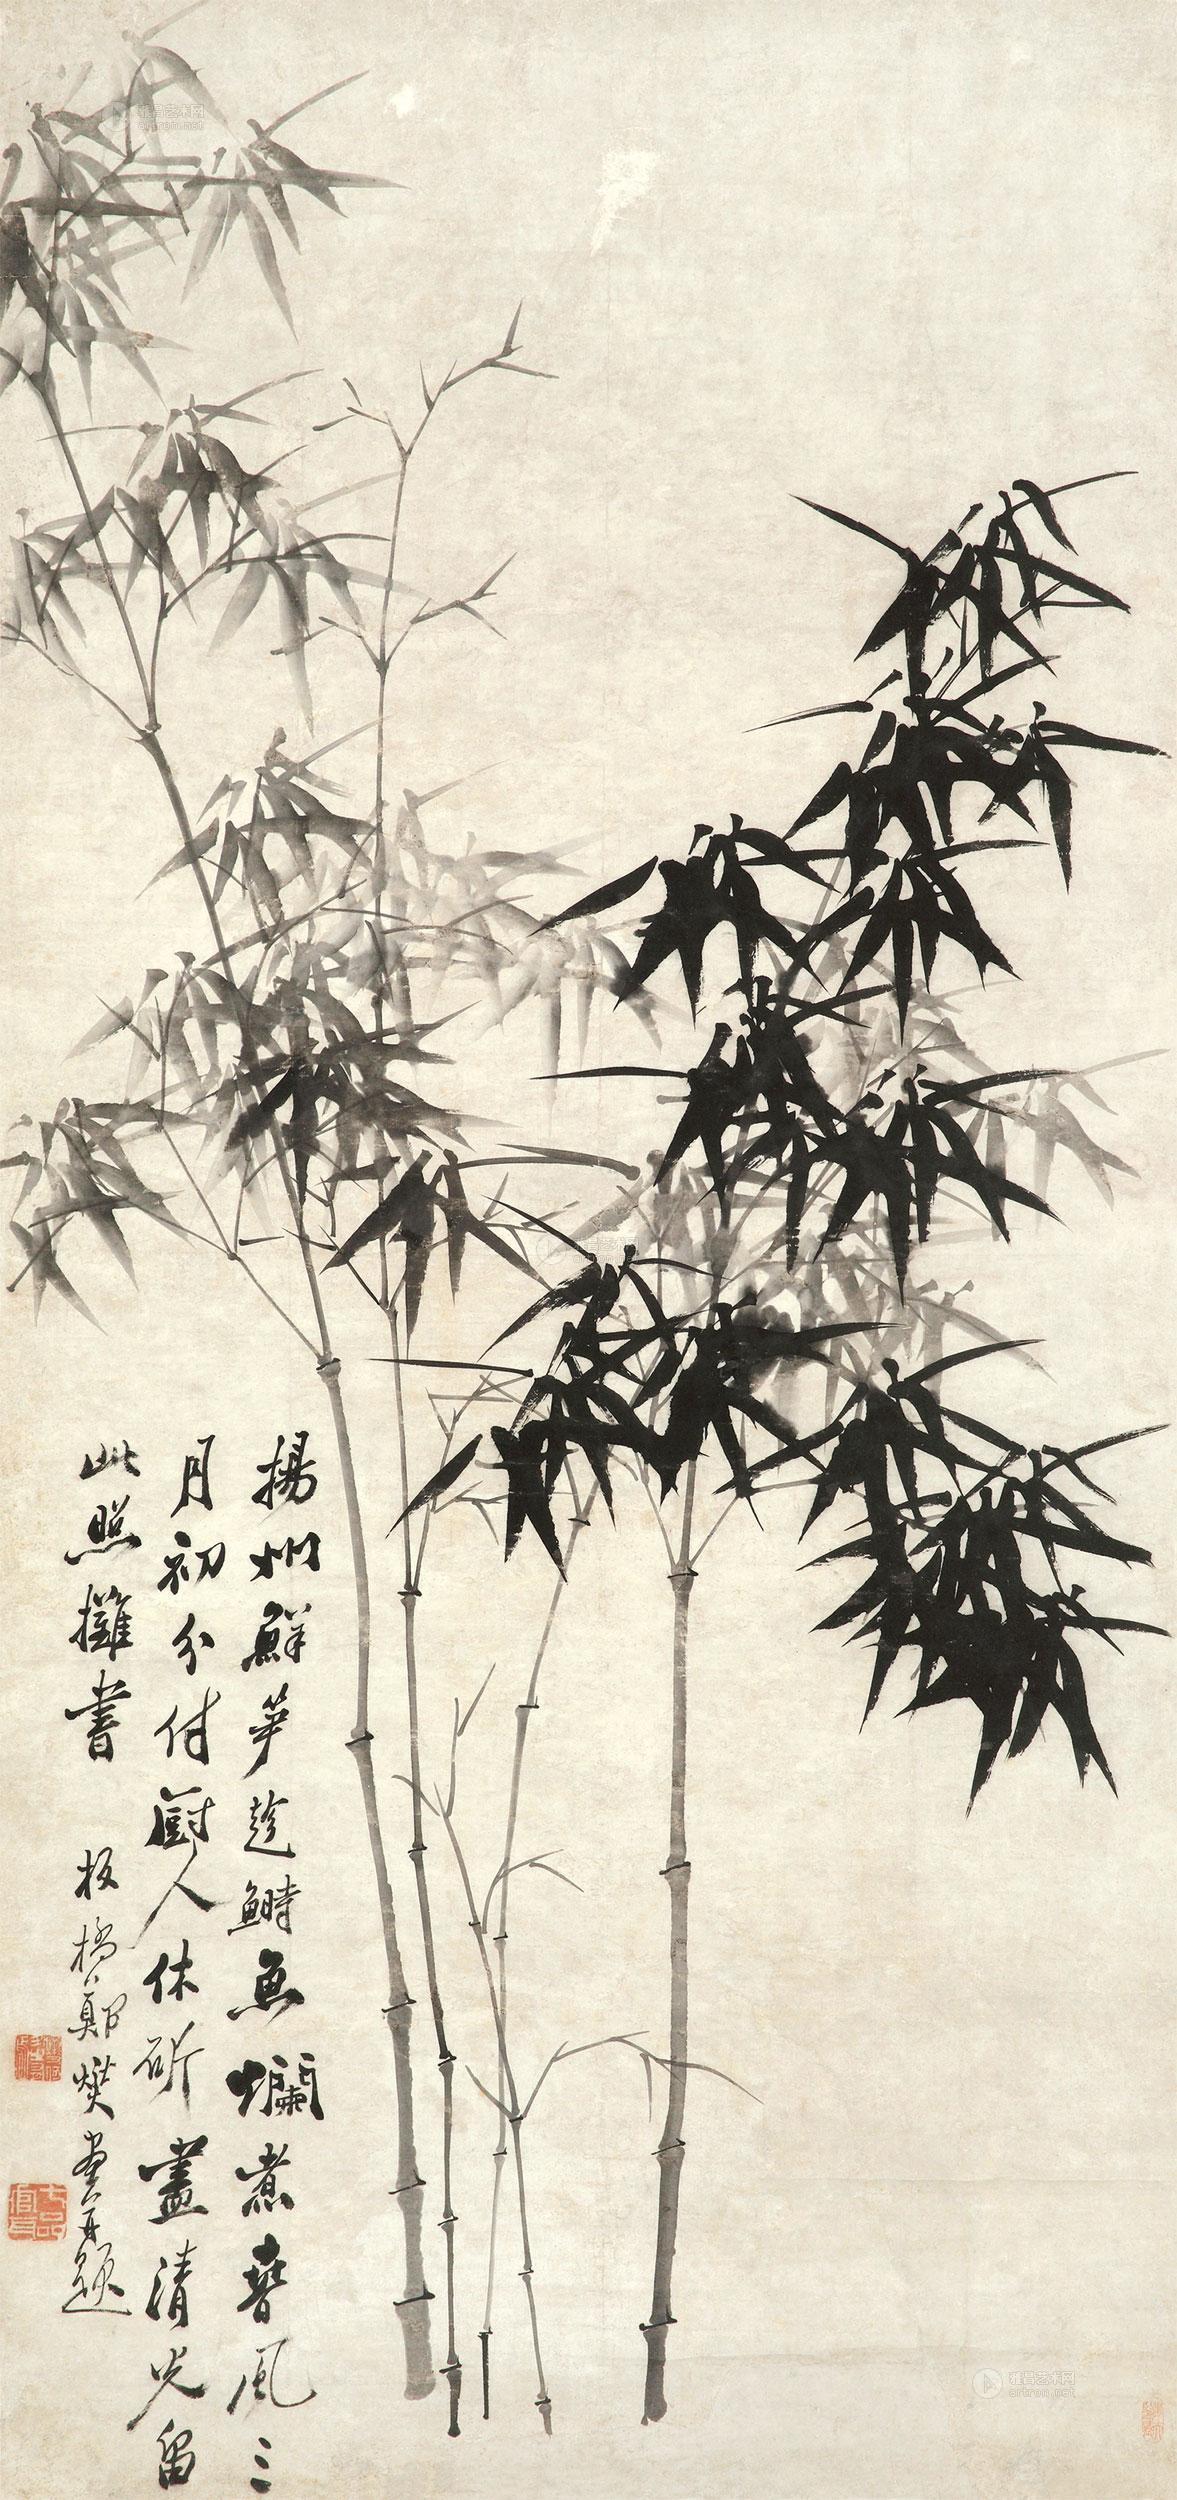 揚州鮮笋趁鰣魚爛煮春風三
月初分付廚人休斫盡清光留
此照攤書
板橋鄭燮畫并題
七品官耳
雅昌艺术网
artron.net
雅昌艺术网
artron.net